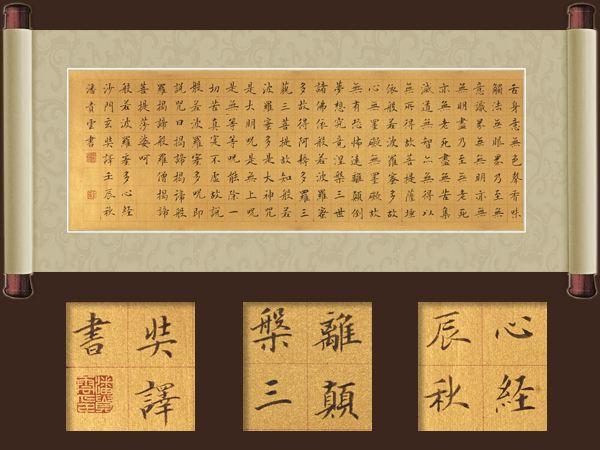 舌身意無色聲香味
觸法無眼界乃至無
意識界無無明亦無
無明盡乃至無老死
亦無老死盡無苦集
滅道無智亦無得以
無所得故菩提薩埵
依般若波羅蜜多故
心無罣礙無罣礙故
無有恐怖遠離顛倒
夢想究竟涅槃三世
諸佛依般若波羅蜜
多故得阿耨多羅三
藐三菩提故知般若
波羅蜜多是大神呪
是大明呪是無上呪
是無等等呪能除一
切苦真實不虛故説
般若波羅蜜多呪即
説呪曰揭諦揭諦般
羅揭諦般羅僧揭諦
菩提莎婆呵
般若波羅蜜多心経
沙門玄奘譯壬辰秋
潘貴雲書
心経
辰秋
離顛
槃三
奘譯
書